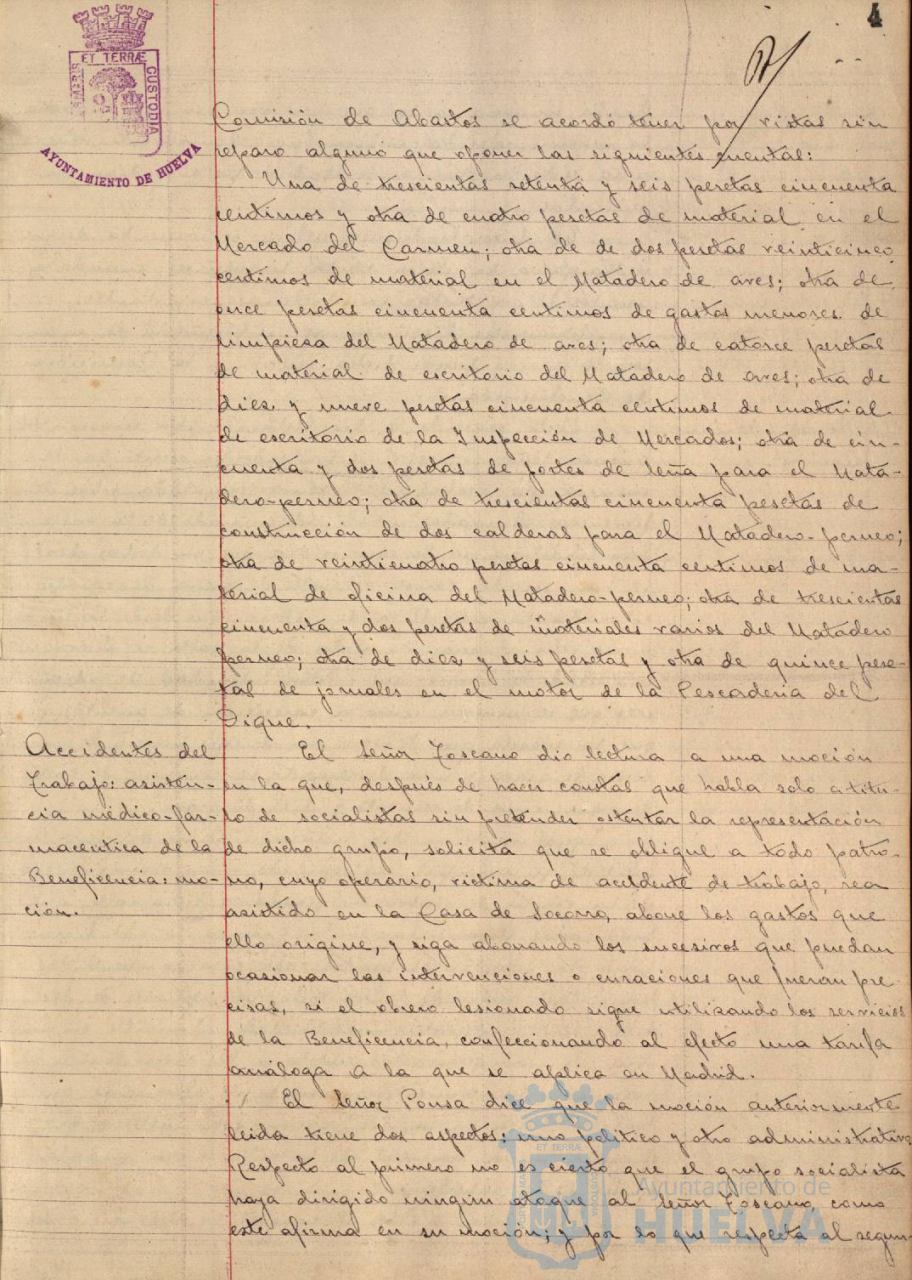 4
ET TERRÆ
CUSTODIA
AYUNTAMIENTO DE HUELVA
Comisión de Abastos se acordó tener por vistas sin
reparo alguno que oponer las siguientes cuentas:
Una de trescientas setenta y seis pesetas cincuenta
centimos y otra de cuatro pesetas de material en el
Mercado del Carmen; otra de de dos pesetas veinticinco
centimos de material en el Matadero de aves; otra de
once pesetas cincuenta centimos de gastos menores de
limpiesa del Matadero de aves; otra de catorce pesetas
de material de escritorio del Matadero de aves; otra de
diez y nueve pesetas cincuenta centimos de material
de escritorio de la Inspección de Mercados; otra de cin-
cuenta y dos pesetas de portes de leña para el Mata-
dero-perneo; otra de trescientas cincuenta pesetas de
construcción de dos calderas para el Matadero-perneo;
otra de veinticuatro pesetas cincuenta centimos de ma-
terial de oficina del Matadero-perneo; otra de trescientas
cincuenta y dos pesetas de materiales varios del Matadero
perneo; otra de diez y seis pesetas y otra de quince pese-
tas de jornales en el motor de la Pescaderia del
Dique.
Accidentes del
Trabajo: asisten-
cia médico-far-
maceutica de la
Beneficencia: mo-
ción.
El Señor Toscano dio lectura a una moción
en la que, después de hacer constar que habla solo a titu-
lo de socialistas sin pretender ostentar la representación
de dicho grupo, solicita que se obligue a todo patro-
no, cuyo operario, victima de accidente de trabajo, sea
asistido en la Casa de Socorro, abone los gastos que
ello origine, y siga abonando los sucesivos que puedan
ocasionar las intervenciones o curaciones que fueran pre-
cisas, si el obrero lesionado sigue utilizando los servicios
de la Beneficencia, confeccionando al efecto una tarifa
análoga a la que se aplica en Madrid.
El Señor Ponsa dice que la moción anteriormente
leida tiene dos aspectos: uno politico y otro administrativo
Respecto al primero no es cierto que el grupo socialista
haya dirigido ningun ataque al Señor Toscano, como
este afirma en su moción; y por lo que respecta al segun-
Ayuntamiento de
HUELVA